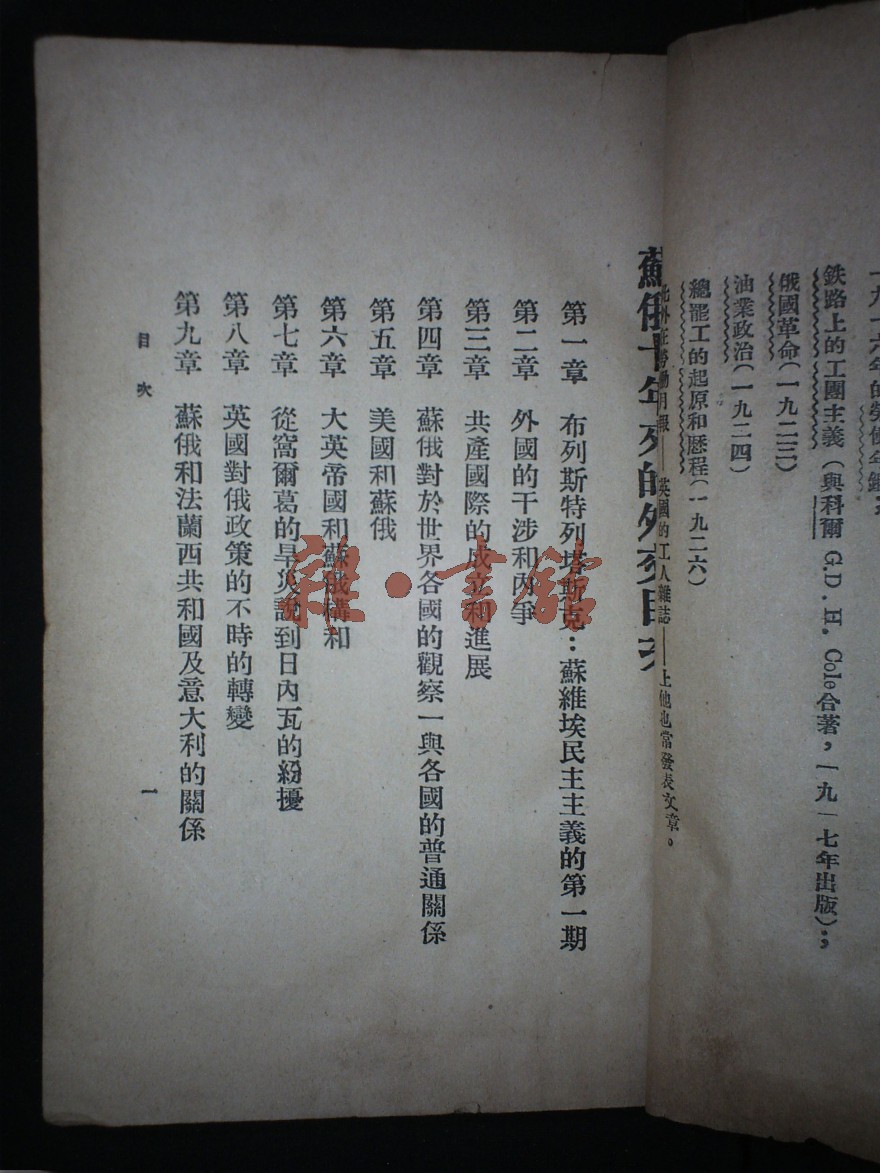 一九一六年的勞働年鑑
鉄路上的工團主義（與科爾 G.D.H. Cole合著，一九一七年出版）；
俄國革命（一九二三）
油業政治（一九二四）
總罷工的起原和歷程（一九二六）
此外在勞働月報——英國的工人雜誌——上他也常發表文章。
蘇俄十年來的外交目次
第一章 布列斯特列塔斯克：蘇維埃民主主義的第一期
第二章 外國的干涉和內爭
第三章 共產國際的成立和進展
第四章 蘇俄對於世界各國的觀察一與各國的普通關係
第五章 美國和蘇俄
第六章 大英帝國和蘇俄構和
第七章 從窩爾葛的旱災說到日內瓦的紛擾
第八章 英國對俄政策的不時的轉變
第九章 蘇俄和法蘭西共和國及意大利的關係
目次
一
雜·書館